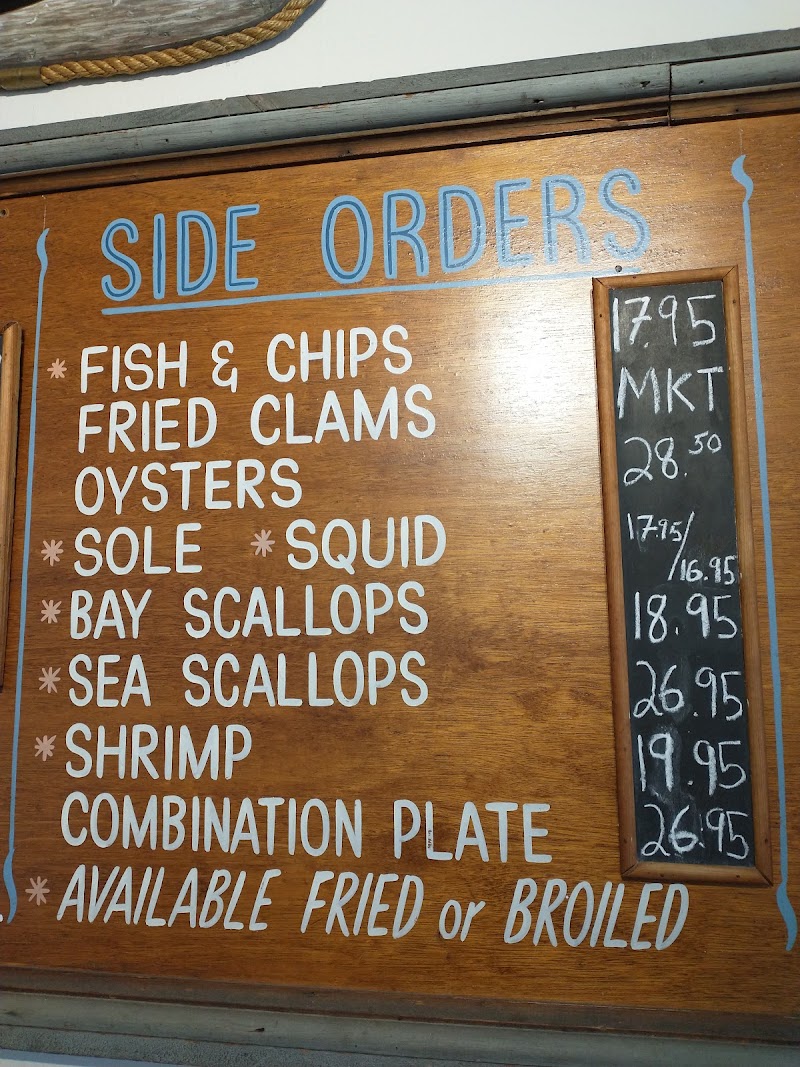 SIDE ORDERS
* FISH & CHIPS 17.95
FRIED CLAMS MKT
OYSTERS 28.50
* SOLE * SQUID 17.95/16.95
* BAY SCALLOPS 18.95
* SEA SCALLOPS 26.95
* SHRIMP 19.95
COMBINATION PLATE 26.95
* AVAILABLE FRIED or BROILED